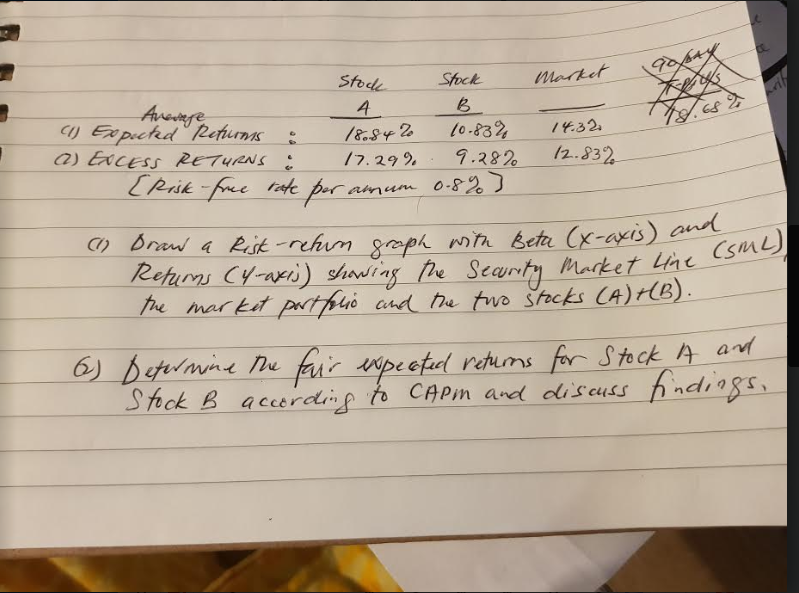 Stock Stock Market
A B
Average
(1) Expected Returns : 18.84% 10.83% 14.3%
(2) EXCESS RETURNS : 17.29% 9.28% 12.83%
[Risk-free rate per annum 0.8%]
90 DAY
T-Bills
18.68%
(1) Draw a Risk-return graph with Beta (X-axis) and
Returns (Y-axis) showing the Security Market Line (SML),
the market portfolio and the two stocks (A)+(B).
(2) Determine the fair expected returns for Stock A and
Stock B according to CAPM and discuss findings.